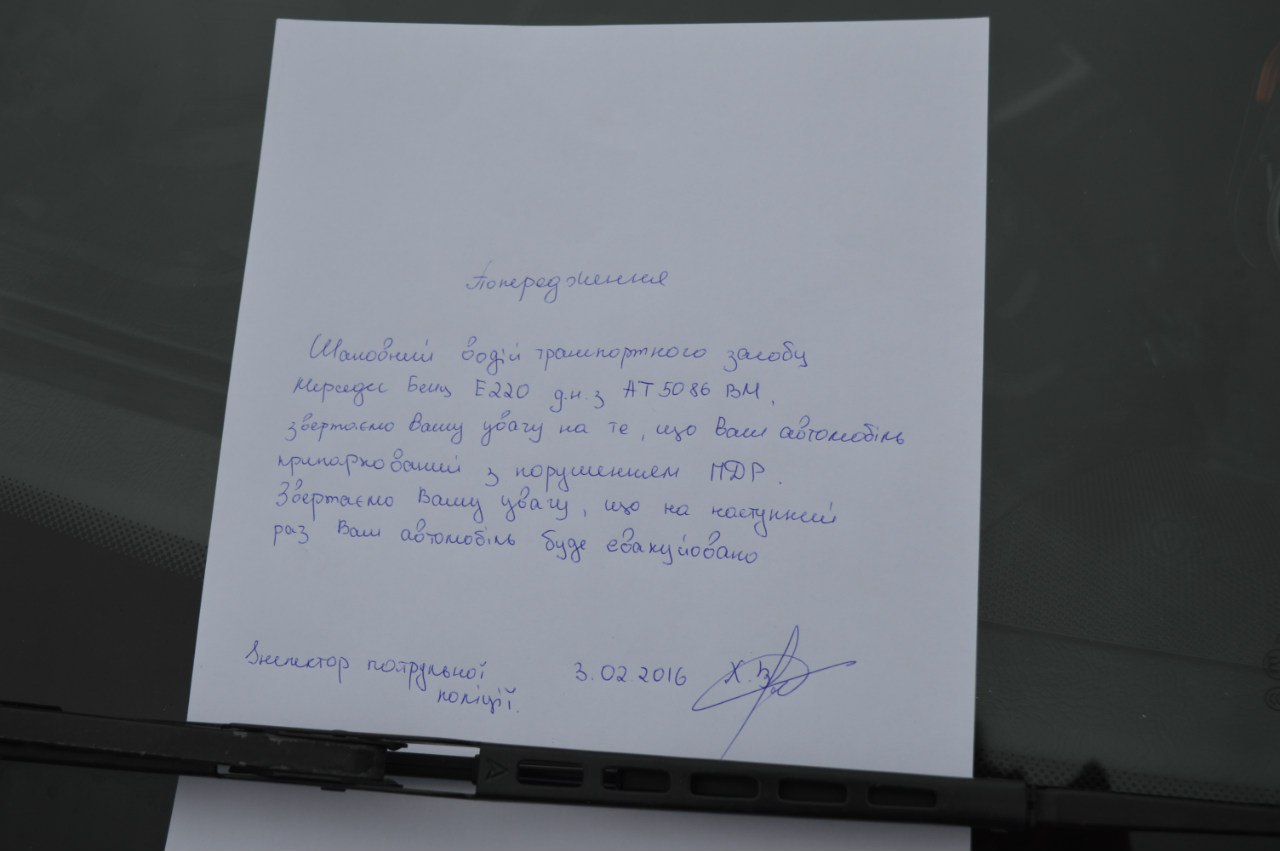 Попередження
Шановний водій транспортного засобу
Мерседес Бенц Е220 д.н.з АТ5086ВМ,
звертаємо Вашу увагу на те, що Ваш автомобіль
припаркований з порушенням ПДР.
Звертаємо Вашу увагу, що на наступний
раз Ваш автомобіль буде евакуйовано
Інспектор патрульної 3.02.2016 Х.В
поліції.